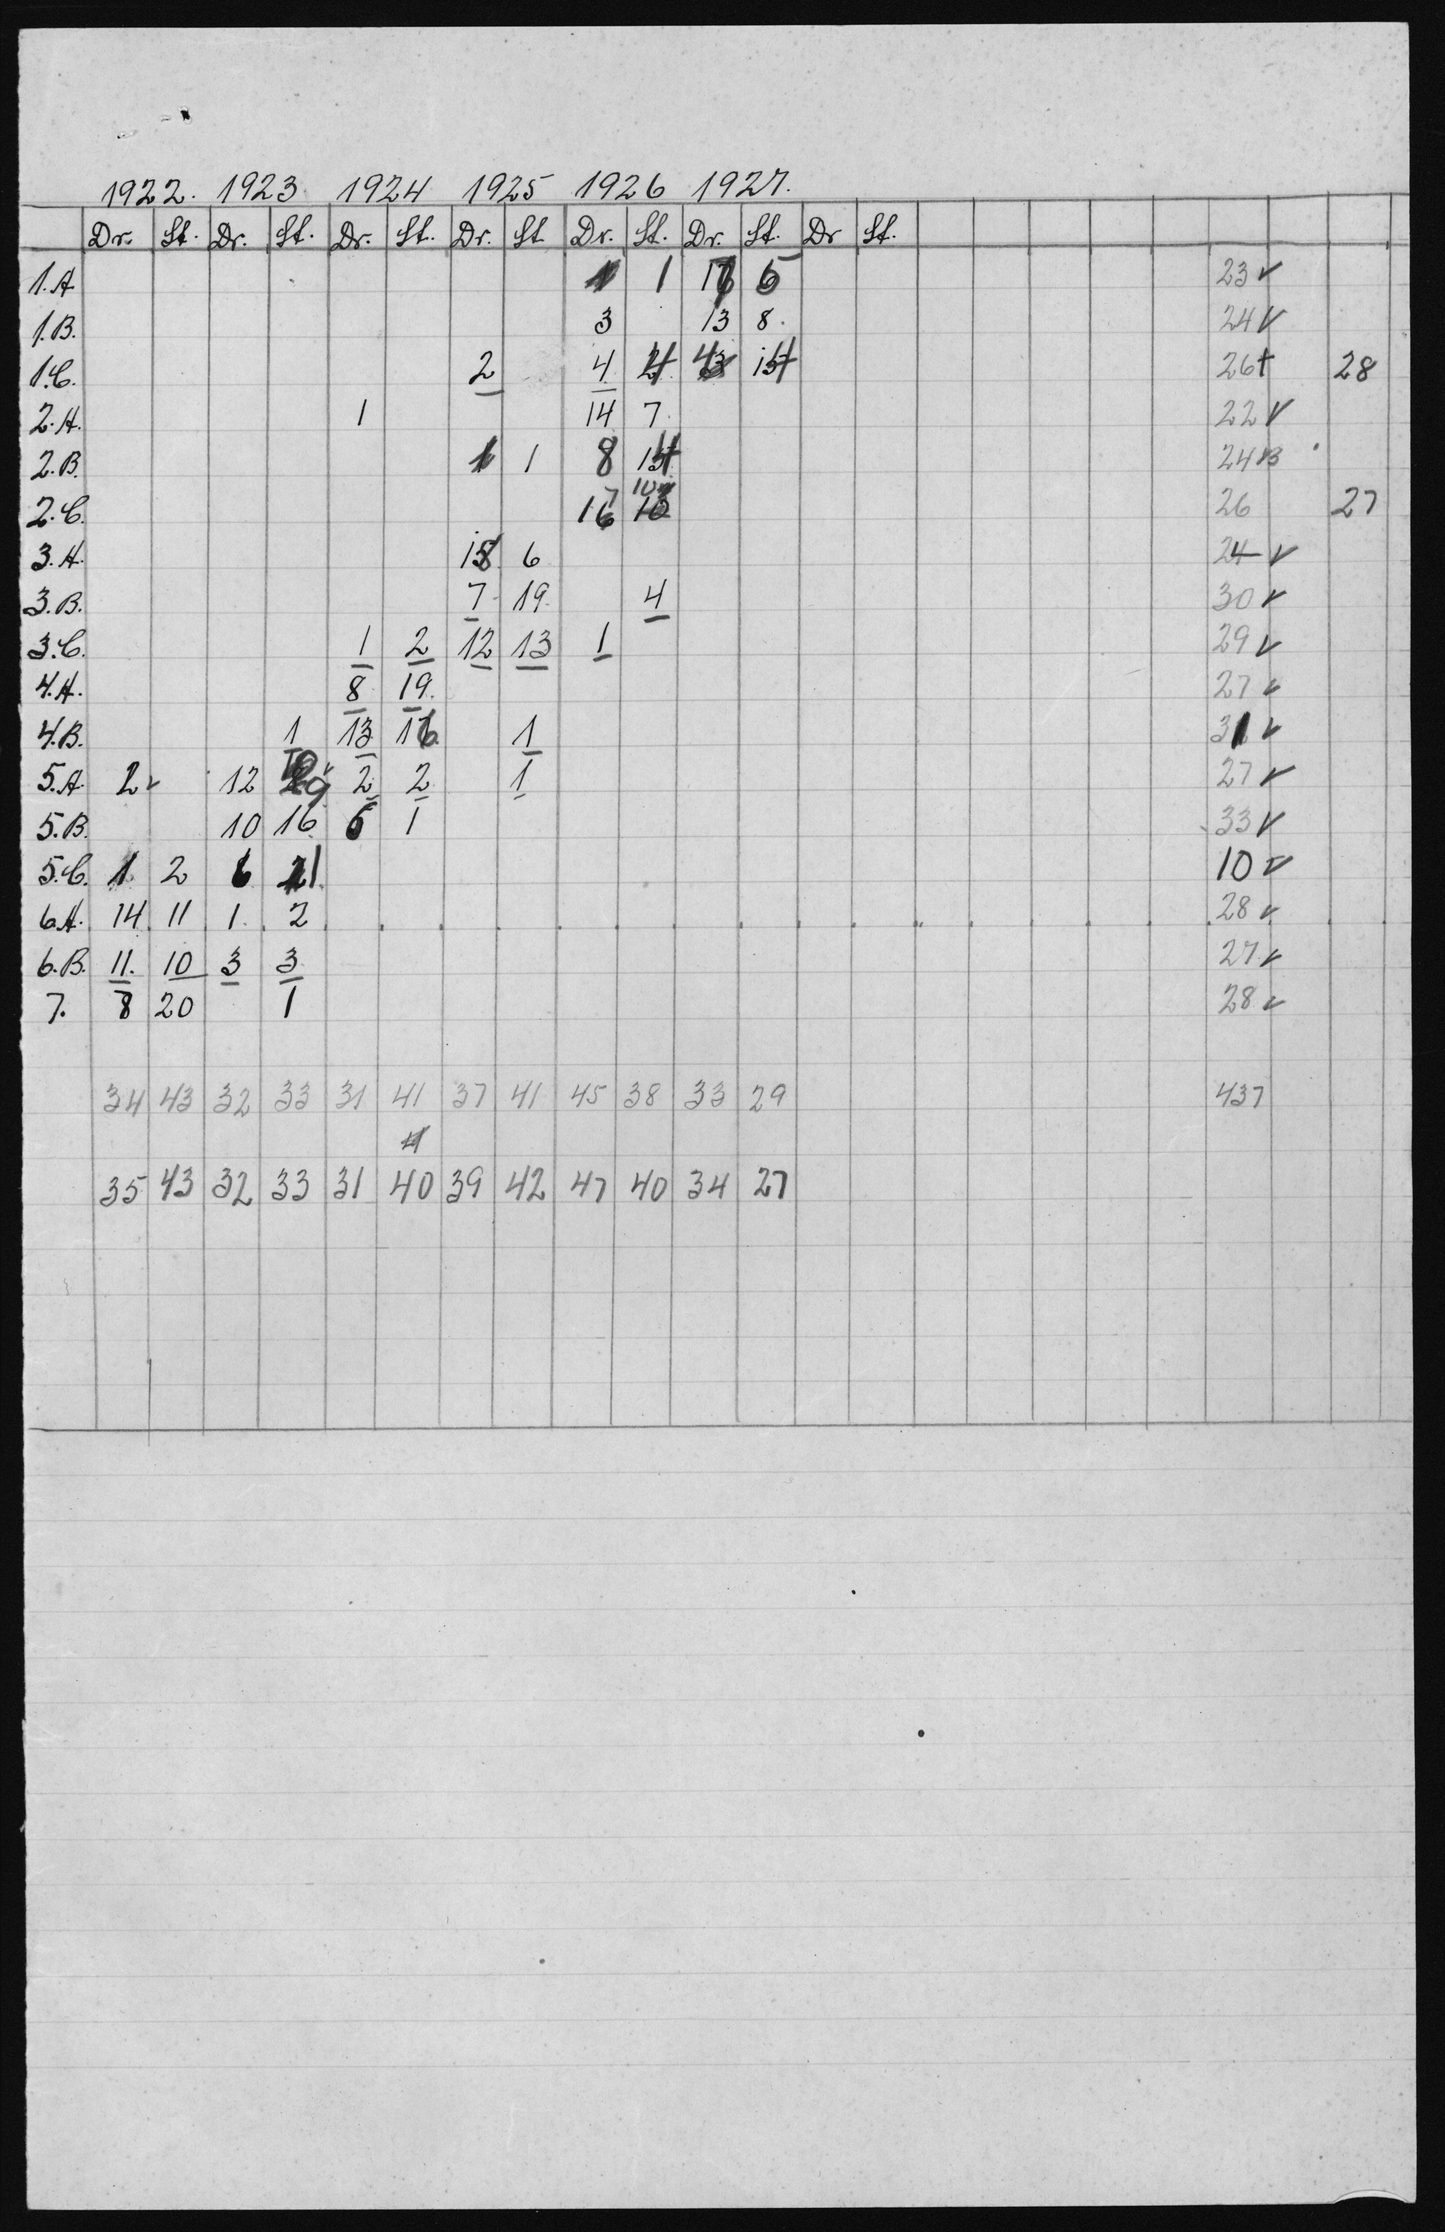 1922. 1923 1924 1925 1926 1927.
Dr. St. Dr. St. Dr. St. Dr. St Dr. St. Dr. St. Dr St.
1.A 1 5 23
1.B. 3 13 8. 24
1.C. 2 4 26 28
2.A. 1 14 7. 22
2.B. 1 8 24
2.C. 26 27
3.A. 6 24
3.B. 7 19. 4 30
3.C. 1 2 12 13 1 29
4.A. 8 19. 27
4.B. 1 13 16 1 31
5.A 2 12 2 2 1 27
5.B. 10 16 6 1 33
5.C. 1 2 6 1 10
6.A. 14 11 1 2 28
6.B. 11. 10 3 3 27
7. 8 20 1 28
34 43 32 33 31 41 37 41 45 38 33 29 437
35 43 32 33 31 40 39 42 47 40 34 27